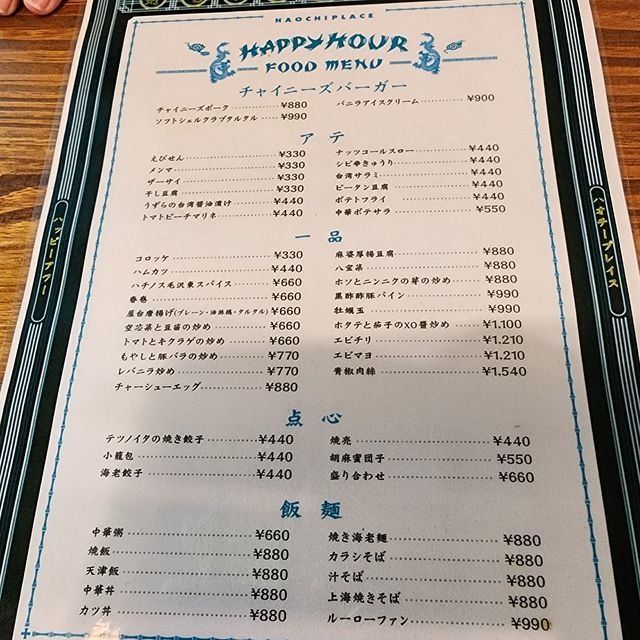 HAOCHIPLACE
HAPPY HOUR
FOOD MENU
チャイニーズバーガー
チャイニーズポーク ¥880
ソフトシェルクラブタルタル ¥990
バニラアイスクリーム ¥900
アテ
えびせん ¥330
メンマ ¥330
ザーサイ ¥330
干し豆腐 ¥330
うずらの台湾醤油漬け ¥440
トマトピーチマリネ ¥440
ナッツコールスロー ¥440
シビ辛きゅうり ¥440
台湾サラミ ¥440
ピータン豆腐 ¥440
ポテトフライ ¥440
中華ポテサラ ¥550
一品
コロッケ ¥330
ハムカツ ¥440
ハチノス毛沢東スパイス ¥660
春巻 ¥660
屋台唐揚げ(プレーン・油淋鶏・タルタル) ¥660
空芯菜と豆苗の炒め ¥660
トマトとキクラゲの炒め ¥660
もやしと豚バラの炒め ¥770
レバニラ炒め ¥770
チャーシューエッグ ¥880
麻婆厚揚豆腐 ¥880
八宝菜 ¥880
ホソとニンニクの芽の炒め ¥880
黒酢酢豚パイン ¥990
牡蠣玉 ¥990
ホタテと茄子のXO醤炒め ¥1,100
エビチリ ¥1,210
エビマヨ ¥1,210
青椒肉絲 ¥1,540
点心
テツノイタの焼き餃子 ¥440
小籠包 ¥440
海老餃子 ¥440
焼売 ¥440
胡麻蜜団子 ¥550
盛り合わせ ¥660
飯麺
中華粥 ¥660
焼飯 ¥880
天津飯 ¥880
中華丼 ¥880
カツ丼 ¥880
焼き海老麺 ¥880
カラシそば ¥880
汁そば ¥880
上海焼きそば ¥880
ルーローファン ¥990
ハッピーアワー
ハオチープレイス